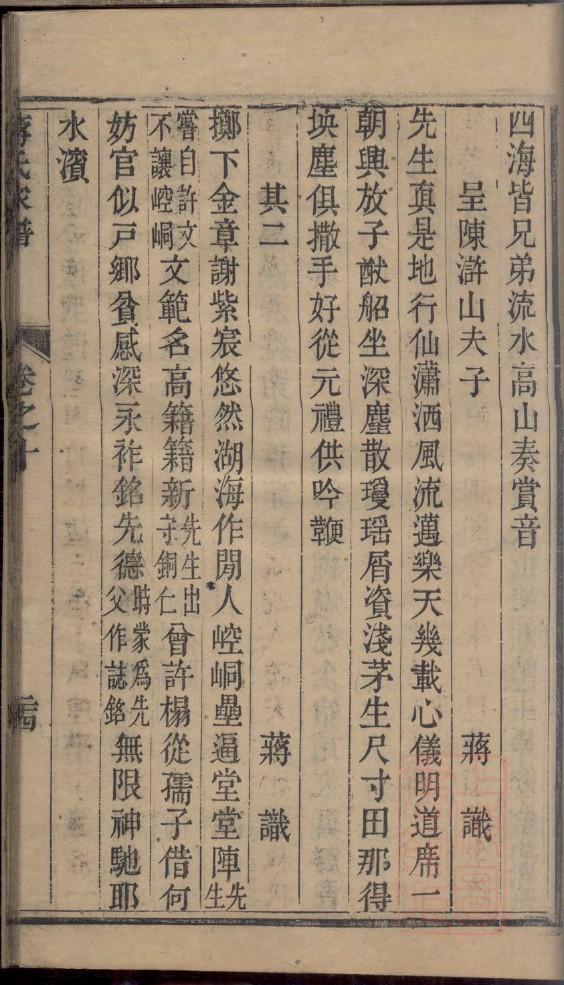 四海皆兄弟流水高山奏賞音
呈陳滸山夫子　蔣識
先生真是地行仙瀟洒風流邁樂天幾載心儀明道席一
朝興放子猷船坐深塵散瓊瑶屑資淺茅生尺寸田那得
埉塵俱撒手好從元禮供吟鞭
其二　蔣識
擲下金章謝紫宸悠然湖海作閒人崆峒壘逼堂堂陣先生
嘗自許文不讓崆峒文範名高籍籍新先生出守銅仁曾許榻從孺子借何
妨官似戸鄉貧感深永祚銘先德時蒙爲先父作誌銘無限神馳耶
水濱
蔣氏家譜　卷之十　二十四